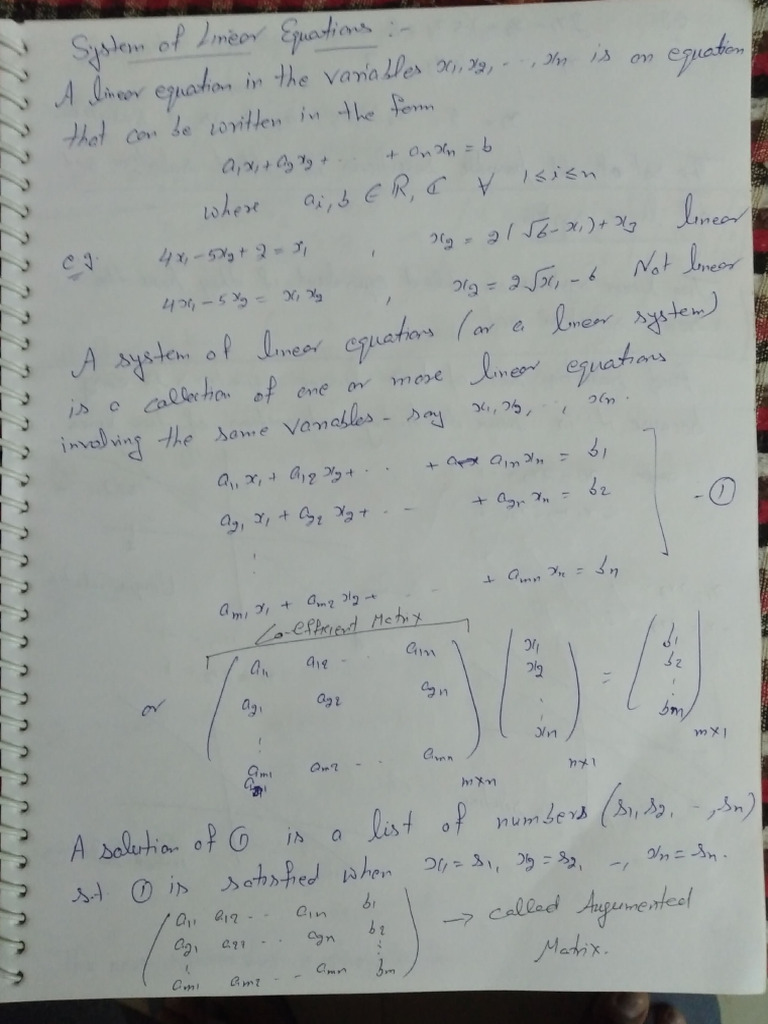 System of Linear Equations :-
A linear equation in the variables x₁, x₂, --, xₙ is an equation
that can be written in the form
a₁x₁ + a₂x₂ + ... + aₙxₙ = b
where aᵢ, b ∈ ℝ, ℂ ∀ 1 ≤ i ≤ n
e.g. 4x₁ - 5x₂ + 2 = x₁ , x₂ = 2(√6 - x₁) + x₃ linear
4x₁ - 5x₂ = x₁x₂ , x₂ = 2√x₁ - 6 Not linear
A system of linear equations (or a linear system)
is a collection of one or more linear equations
involving the same variables - say x₁, x₂, --, xₙ.
a₁₁x₁ + a₁₂x₂ + ... + a₁ₙxₙ = b₁
a₂₁x₁ + a₂₂x₂ + ... + a₂ₙxₙ = b₂ - ①
⋮
aₘ₁x₁ + aₘ₂x₂ + ... + aₘₙxₙ = bₙ
Co-efficient Matrix
a₁₁ a₁₂ -- a₁ₙ x₁ b₁
or a₂₁ a₂₂ a₂ₙ x₂ = b₂
⋮ ⋮ ⋮
aₘ₁ aₘ₂ -- aₘₙ xₙ bₘ
m×n n×1 m×1
A solution of ① is a list of numbers (s₁, s₂, --, sₙ)
s.t. ① is satisfied when x₁ = s₁, x₂ = s₂, --, xₙ = sₙ.
a₁₁ a₁₂ -- a₁ₙ b₁ → called Augumented
a₂₁ a₂₂ -- a₂ₙ b₂ Matrix.
⋮ ⋮
aₘ₁ aₘ₂ -- aₘₙ bₘ